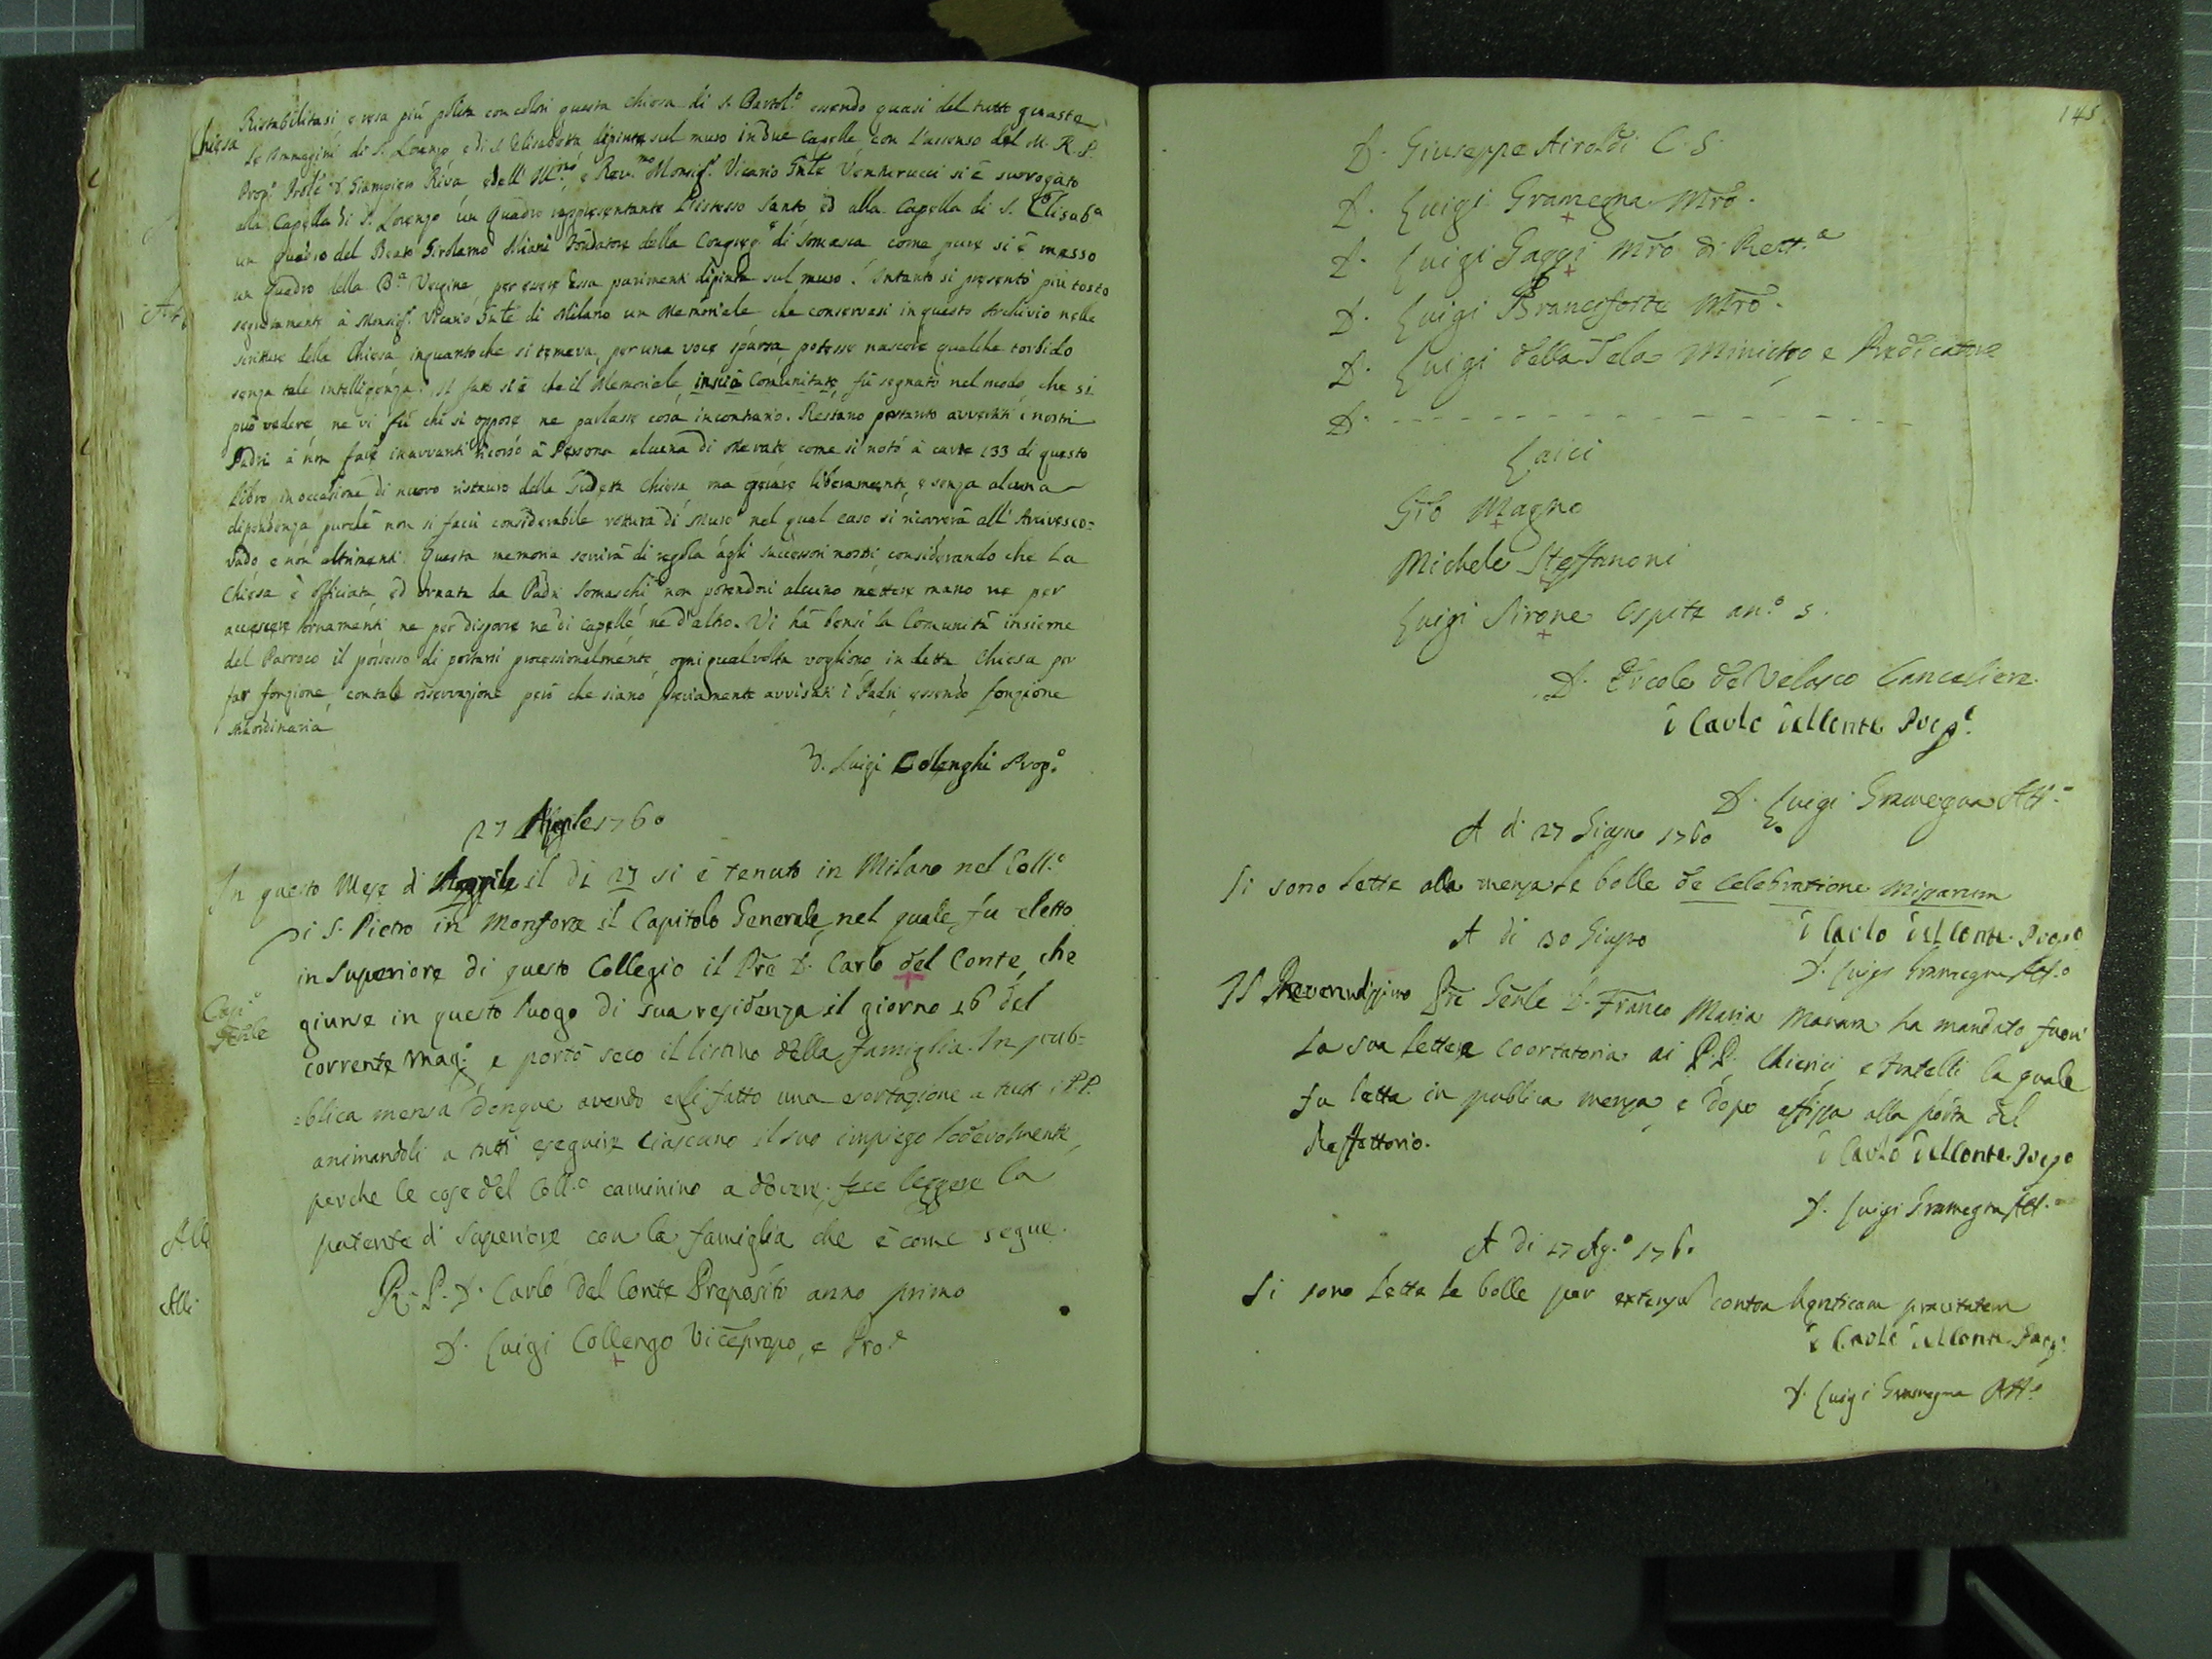 Chiesa
Ristabilitasi e resa più polita con colori questa chiesa di S. Bartol.o essendo quasi del tutto guaste
le Immagini di S. Lorenzo e di S. Elisabetta dipinte sul muro in due Capelle, con l'assenso del M. R. P.
Prop.o Prole D. Giampiero Riva e dell' Ill.mo e Rev.mo Monsig.r Vicario Gnle Venturucci si è surrogato
alla Capella di S. Lorenzo un Quadro rappresentante l'istesso Santo ed alla Capella di S. Elisab.a
un Quadro del Beato Girolamo Miani Fondatore della Congreg.e di Somasca come pure si è messo
un quadro della B.a Vergine per essere Essa parimenti dipinta sul muro. Intanto si presentò più tosto
segretamente à Monsig.r Vicario Gnle di Milano un Memoriale che conservasi in questo Archivio nelle
scritture della Chiesa, inquanto che si temeva, per una voce sparsa, potesse nascere qualche torbido
senza tale intelligenza. Il fatto si è che il Memoriale, inscia Comunitate, fù segnato nel modo, che si
può vedere ne vi fù chi si oppose ne parlasse cosa in contrario. Restano pertanto avvertiti i nostri
Padri à non fare in avvanti ricorso à Persona alcuna di Merate come si notò à carte 133 di questo
Libro in occasione di nuovo ristauro della Sudetta Chiesa, ma operare liberamente, e senza alcuna
dipendenza purchè non si facci considerabile rottura di Muro nel qual caso si ricorrerà all' Arcivesco-
vado e non altrimenti. Questa memoria servirà di regola agli Successori nostri, considerando che la
Chiesa è Officiata ed ornata da Padri Somaschi non potendovi alcuno mettere mano ne per
accrescere ornamenti ne per disporre ne di Capelle ne d'altro. Vi hà bensì la Comunità insieme
del Parroco il possesso di portarsi processionalmente ogni qualvolta vogliono in detta Chiesa per
far fonzione, con tale osservazione però che siano previamente avvisati i Padri essendo fonzione
straordinaria
D. Luigi Colenghi Prop.o
27 Aprile 1760
In questo Mese di Aprile il dì 27 si è tenuto in Milano nel Coll.o
di S. Pietro in Monforte il Capitolo Generale, nel quale fu eletto
in Superiore di questo Collegio il Pre D. Carlo del Conte, che
Capi.o
Gnle
giunse in questo luogo di sua residenza il giorno 16 del
corrente Mag.o e portò seco il listino della famiglia. In pub-
blica mensa dongue avendo egli fatto una esortazione a tutti i PP.
animandoli a tutti eseguire ciascuno il suo impiego lodevolmente,
perche le cose del Coll.o caminino a dovere, fece leggere la
patente di Superiore con la famiglia che è come segue.
R. P. D. Carlo del Conte Preposito anno primo
D. Luigi Collengo Vicepropo, e Pro.e
145
D. Giuseppe Airoldi C. S.
D. Luigi Gramegna Mro.
D. Luigi Gaggi Mro di Rett.a
D. Luigi Branciforte Mro.
D. Luigi della Tela Ministro e Predicatore
D. - - - - - - - - - - - - - - - -
Laici
Gio Magno
Michele Steffanoni
Luigi Sirone Ospite an.o 5.
D. Ercole de Velasco Cancelliere
D Carlo del Conte Prep.o
D. Luigi Gramegna Att.o
A di 27 Giugno 1760
Si sono lette alla mensa le bolle de Celebratione Missarum
D Carlo del Conte Prepo
D. Luigi Gramegna Att.o
A di 30 Giugno
Il Reverendissimo Pre Genle D. Franco Maria Manara ha mandato fuori
la sua lettera coortatoria ai P.P. Chierici e Fratelli la quale
fu letta in publica mensa, e dopo affissa alla porta del
Reffettorio.
D Carlo del Conte Prepo
D. Luigi Gramegna Att.o
A di 27 Ag.o 1760
Si sono lette le bolle per extensum contra hereticam pravitatem
D Carlo del Conte Prep.o
D. Luigi Gramegna Att.o